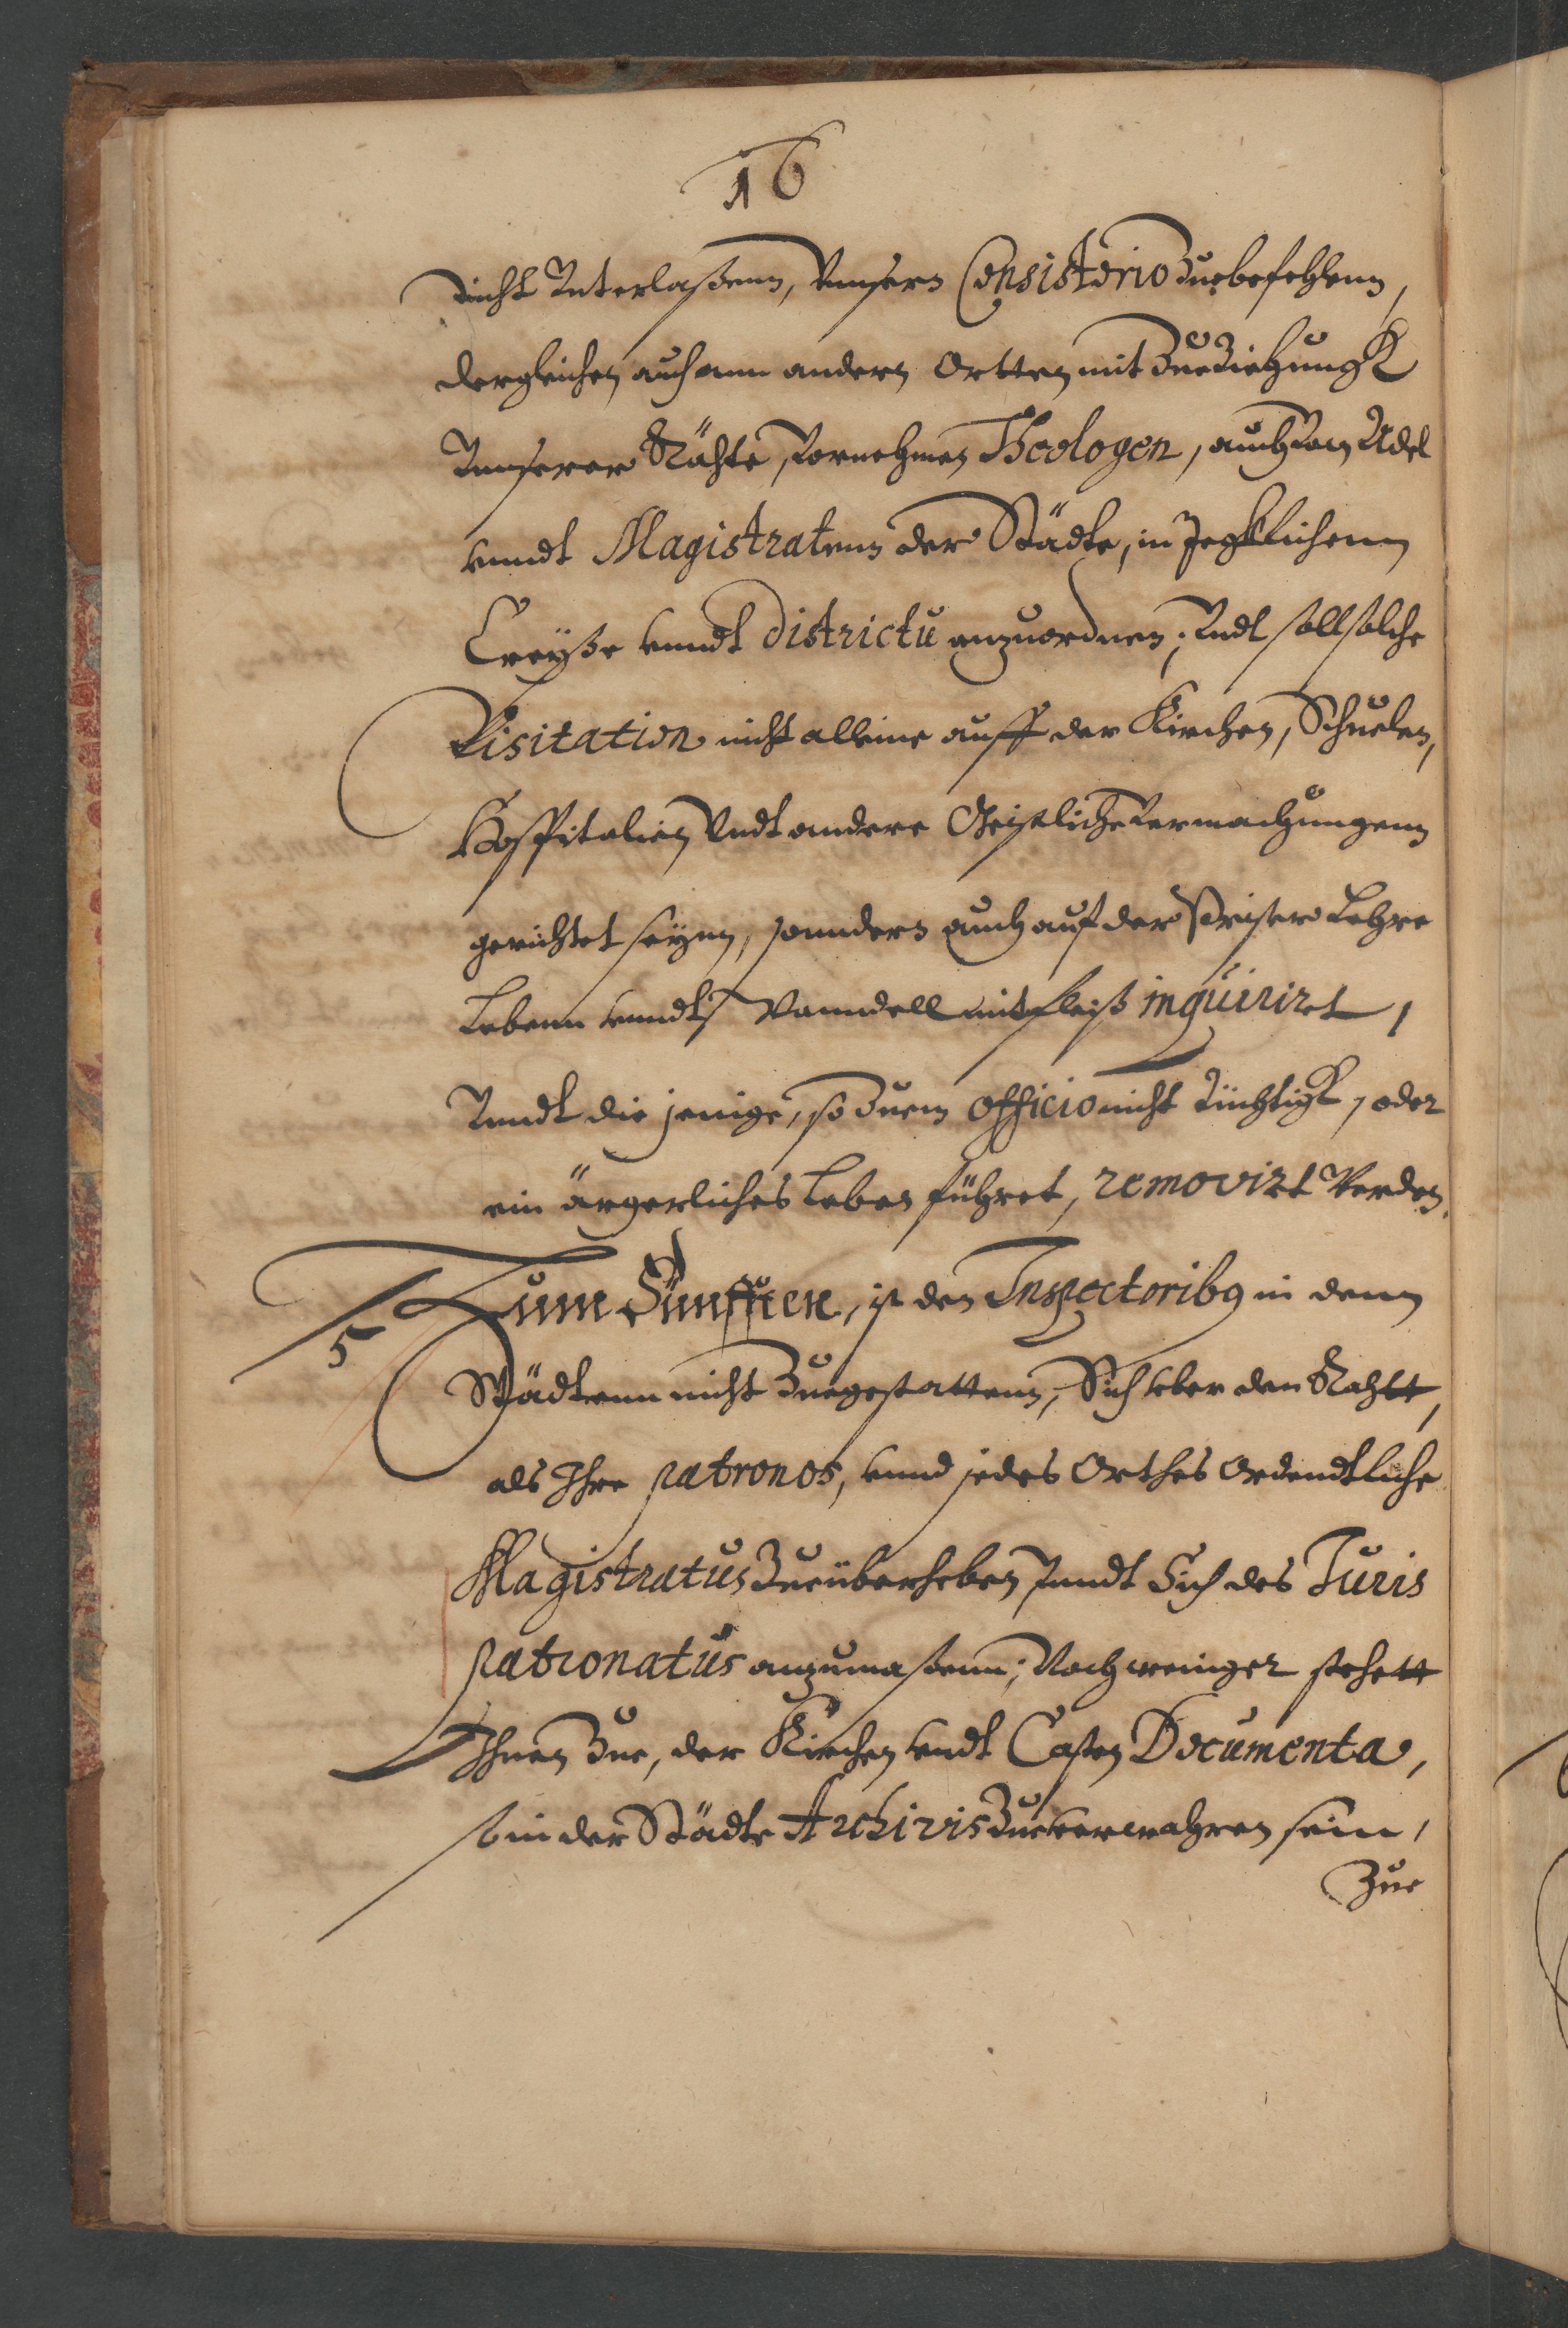 16
nicht Unterlaßenn, Unnserm Consistorio Zuebefehlenn,
dergleichen auch ann andern Ortten mit Zueziehungk
Unnserer Rähte, Vornehmen Theologen, auch von Adel
unndt Magistratenn der Städte, in Jegklichenn
Creyße unndt districtu anzuordnen; Undt soll solche
Visitation nicht alleine auff der Kirchen, Schuelen,
Hospitalien Undt andere Geistliche Vermachungenn
gerichtet seynn, sonndern auch auf der Priester Lehre
Lebenn unndt Wanndell mit fleiß inquirirt,
Unndt die jenige, so Zuem officio nicht tüchtigk, oder
ein ärgerliches Leben führet, removirt Werden.
5 Zum Fünfften, ist den Inspectorib9 in denn
Städtenn nicht Zuegestattenn, Sich über den Rahtt,
als Ihre patronos, unnd jedes Orthes Ordendtliche
Magistratus Zueüberheben Unndt Sich des Iuris
patronatus anzumaßenn; Noch weiniger stehett
Ihnen Zue, der Kirchen undt Casten Documenta,
so in der Städte Archivis Zueverwahren sein,
Zue